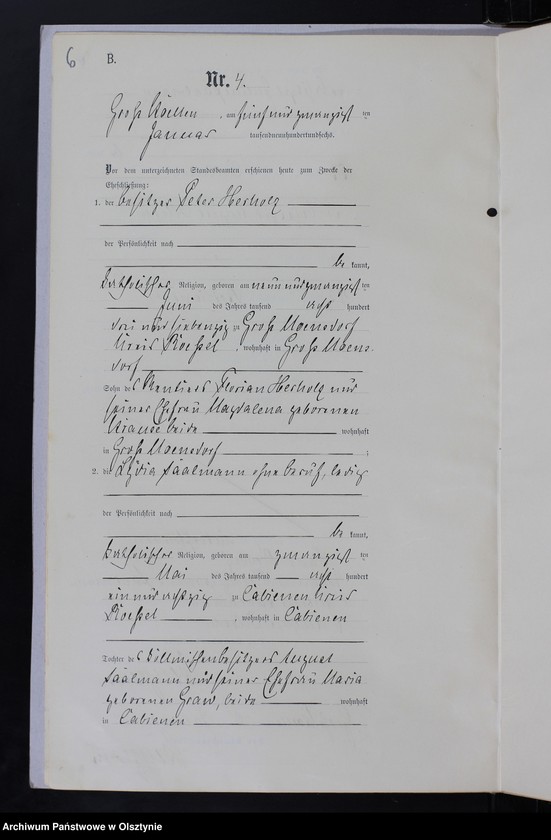 6
B.
Nr. 4.
Groß Köllen, am fünf und zwanzigsten
Januar tausendneunhundertundsechs.
Vor dem unterzeichneten Standesbeamten erschienen heute zum Zwecke der
Eheschließung:
1. der Besitzer Peter Herholz
der Persönlichkeit nach
be kannt,
katholischer Religion, geboren am neun und zwanzigsten
Juni des Jahres tausend acht hundert
drei und siebenzig zu Groß Moensdorf
Kreis Roessel, wohnhaft in Groß Moens-
dorf
Sohn des Rentiers Florian Herholz und
seiner Ehefrau Magdalena geborenen
Krause beide wohnhaft
in Groß Moensdorf;
2. die Lydia Saalmann ohne Beruf, ledig
der Persönlichkeit nach
be kannt,
katholischer Religion, geboren am zwanzigsten
Mai des Jahres tausend acht hundert
ein und achtzig zu Cabienen Kreis
Roessel, wohnhaft in Cabienen
Tochter des Köllmischenbesitzers August
Saalmann und seiner Ehefrau Maria
geborenen Graw, beide wohnhaft
in Cabienen
Archiwum Państwowe w Olsztynie